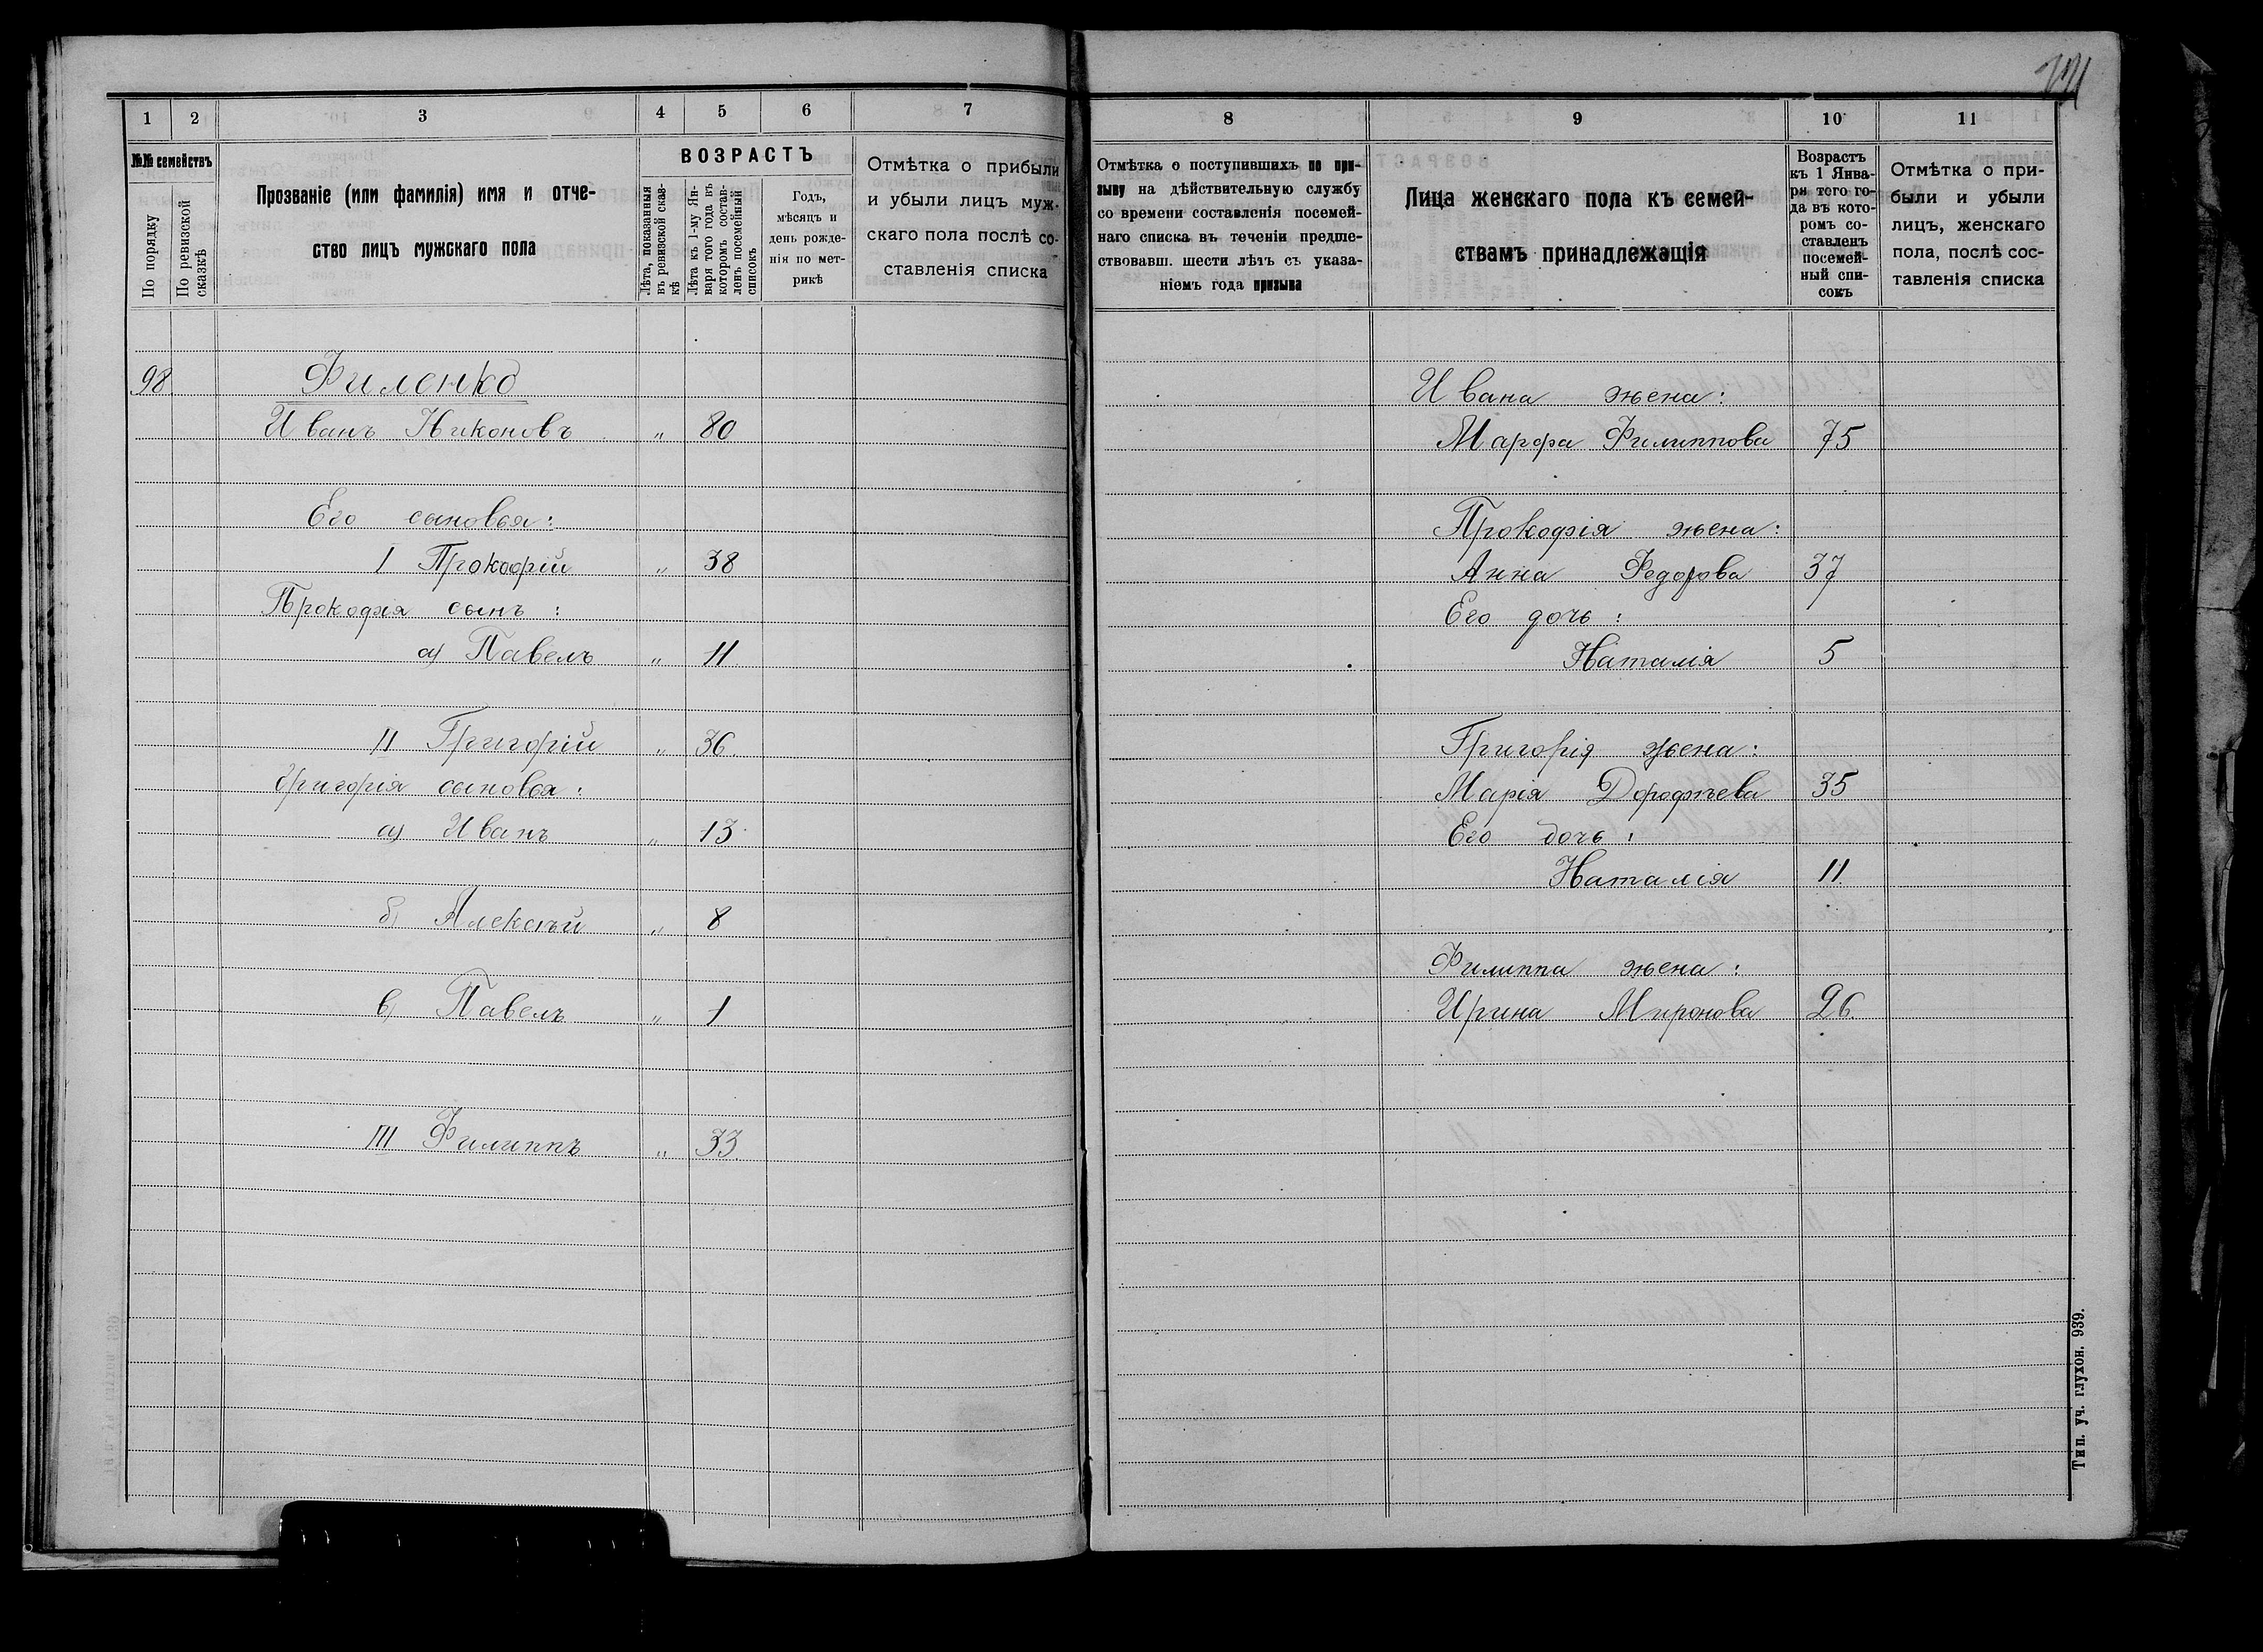 1 2 3 4 5 6 7
№№ семействъ
По порядку
По ревизской сказкѣ
Прозваніе (или фамилія) имя и отче-
ство лицъ мужскаго пола
ВОЗРАСТЪ
Лѣта, показанныя
въ ревизской сказ-
кѣ
Лѣта къ 1-му Ян-
варя того года въ
которомъ состав-
ленъ посемейный
списокъ
Годъ,
мѣсяцъ и
день рожде-
нія по мет-
рикѣ
Отмѣтка о прибыли
и убыли лицъ муж-
скаго пола послѣ со-
ставленія списка
98 Филенко
Иванъ Никоновъ „ 80
Его сыновья:
I Прокофій „ 38
Прокофія сынъ:
а) Павелъ „ 11
II Григорій „ 36
Григорія сыновья:
а) Иванъ „ 13
б) Алексѣй „ 8
в) Павелъ „ 1
III Филиппъ „ 33
8 9 10 11
Отмѣтка о поступившихъ по при-
зыву на дѣйствительную службу
со времени составленія посемей-
наго списка въ теченіи предше-
ствовавш. шести лѣтъ съ указа-
ніемъ года призыва
Лица женскаго пола къ семей-
ствамъ принадлежащія
Возрастъ
къ 1 Янва-
ря того го-
да въ кото-
ромъ со-
ставленъ
посемей-
ный спи-
сокъ
Отмѣтка о при-
были и убыли
лицъ, женскаго
пола, послѣ сос-
тавленія списка
Ивана жена:
Марфа Филиппова 75
Прокофія жена:
Анна Федорова 37
Его дочь:
Наталія 5
Григорія жена:
Марія Дорофѣева 35
Его дочь:
Наталія 11
Филиппа жена:
Ирина Миронова 26
Тип. уч. глухон. 939.